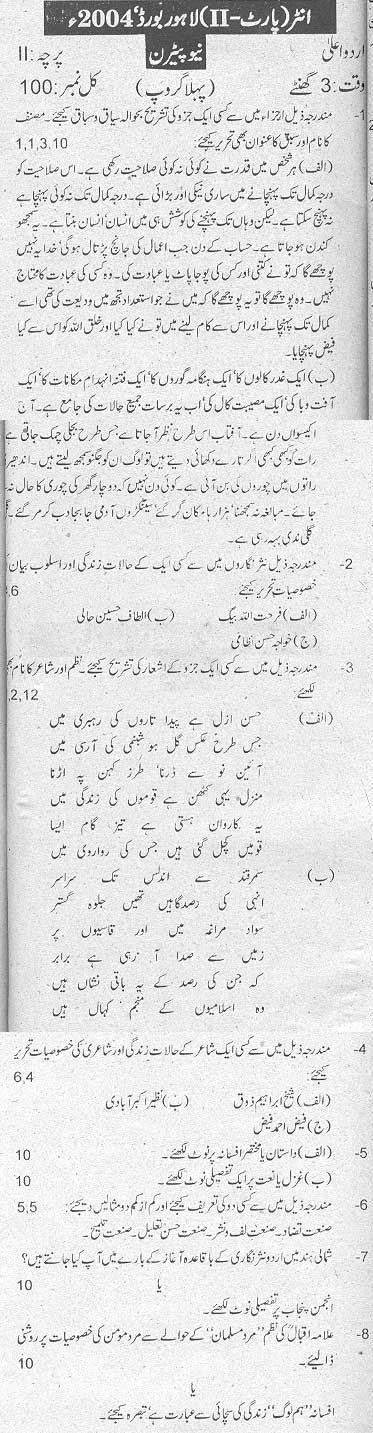 انٹر (پارٹ-II) لاہور بورڈ 2004ء
اردو اعلیٰ نیو پیٹرن پرچہ: II
وقت: 3 گھنٹے (پہلا گروپ) کل نمبر: 100
1- مندرجہ ذیل اجزاء میں سے کسی ایک جزو کی تشریح بحوالہ سیاق و سباق کیجئے۔ مصنف
کا نام اور سبق کا عنوان بھی تحریر کیجئے: 1,1,3,10
(الف) ہر شخص میں قدرت نے کوئی نہ کوئی صلاحیت رکھی ہے۔ اس صلاحیت کو
درجہ کمال تک پہنچانے میں ساری نیکی اور بڑائی ہے۔ درجہ کمال تک نہ کوئی پہنچا ہے
نہ پہنچ سکتا ہے۔ لیکن وہاں تک پہنچنے کی کوشش ہی میں انسان انسان بنتا ہے۔ یہ سمجھو
کندن ہو جاتا ہے۔ حساب کے دن جب اعمال کی جانچ پڑتال ہوگی خدا یہ نہیں
پوچھے گا کہ تو نے کتنی اور کس کی پوجا پاٹ یا عبادت کی۔ وہ کسی کی عبادت کا محتاج
نہیں۔ وہ پوچھے گا تو یہ پوچھے گا کہ میں نے جو استعداد تجھ میں ودیعت کی تھی اسے
کمال تک پہنچانے اور اس سے کام لینے میں تو نے کیا کیا اور خلق اللہ کو اس سے کیا
فیض پہنچایا۔
(ب) ایک غدر کالوں کا' ایک ہنگامہ گوروں کا' ایک فتنہ انہدام مکانات کا' ایک
آفت وبا کی' ایک مصیبت کال کی' اب یہ برسات جمیع حالات کی جامع ہے۔ آج
اکیسواں دن ہے۔ آفتاب اس طرح نظر آ جاتا ہے جس طرح بجلی چمک جاتی ہے
رات کو کبھی کبھی اگر تارے دکھائی دیتے ہیں تو لوگ ان کو جگنو سمجھ لیتے ہیں۔ اندھیری
راتوں میں چوروں کی بن آئی ہے۔ کوئی دن نہیں کہ دو چار گھر کی چوری کا حال نہ
جائے۔ مبالغہ نہ سمجھنا' ہزار ہا مکان گر گئے' سینکڑوں آدمی جا بجا دب کر مر گئے۔
گلی ندی بہہ رہی ہے۔
2- مندرجہ ذیل نثر نگاروں میں سے کسی ایک کے حالات زندگی اور اسلوب بیان کی
خصوصیات تحریر کیجئے: 6,
(الف) فرحت اللہ بیگ (ب) الطاف حسین حالی
(ج) خواجہ حسن نظامی
3- مندرجہ ذیل میں سے کسی ایک جزو کے اشعار کی تشریح کیجئے۔ نظم اور شاعر کا نام بھی
لکھئے: ,2,12
(الف) حسن ازل ہے پیدا تاروں کی رہبری میں
جس طرح عکس گل ہو شبنم کی آرسی میں
آئین نو سے ڈرنا' طرز کہن پہ اڑنا
منزل یہی کٹھن ہے قوموں کی زندگی میں
یہ کاروان ہستی ہے تیز گام ایسا
قومیں کچل گئی ہیں جس کی رواروی میں
(ب) سمرقند سے اندلس تک سراسر
انہی کی رصدگاہیں تھیں جلوہ گستر
سواد مراغہ میں اور قاسیوں پر
زمیں سے صدا آ رہی ہے برابر
کہ جن کی رصد کے یہ باقی نشاں ہیں
وہ اسلامیوں کے منجم کہاں ہیں
4- مندرجہ ذیل میں سے کسی ایک شاعر کے حالات زندگی اور شاعری کی خصوصیات تحریر
کیجئے: 6,4
(الف) شیخ ابراہیم ذوق (ب) نظیر اکبر آبادی
(ج) فیض احمد فیض
5- (الف) داستان یا مختصر افسانہ پر نوٹ لکھئے۔ 10
(ب) غزل یا نعت پر ایک تفصیلی نوٹ لکھئے۔ 10
6- مندرجہ ذیل میں سے کسی دو کی تعریف کیجئے اور کم از کم دو مثالیں دیجئے: 5,5
صنعت تضاد۔ صنعت لف و نشر۔ صنعت حسن تعلیل۔ صنعت تلمیح۔
7- شمالی ہند میں اردو نثر نگاری کے باقاعدہ آغاز کے بارے میں آپ کیا جانتے ہیں؟
یا 10
انجمن پنجاب پر تفصیلی نوٹ لکھئے۔
8- علامہ اقبالؒ کی نظم "مرد مسلمان" کے حوالے سے مرد مومن کی خصوصیات پر روشنی
ڈالیئے۔ 10
یا
افسانہ "ہم لوگ" زندگی کی سچائی سے عبارت ہے' تبصرہ کیجئے۔